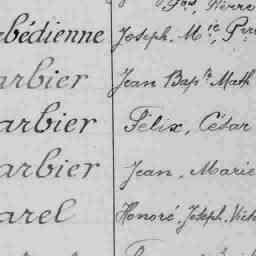 Pierre
bédienne Joseph, M^ie, Pierre
arbier Jean Bap^te Math
arbier Félix, César
arbier Jean, Marie
arel Honoré, Joseph, Vict